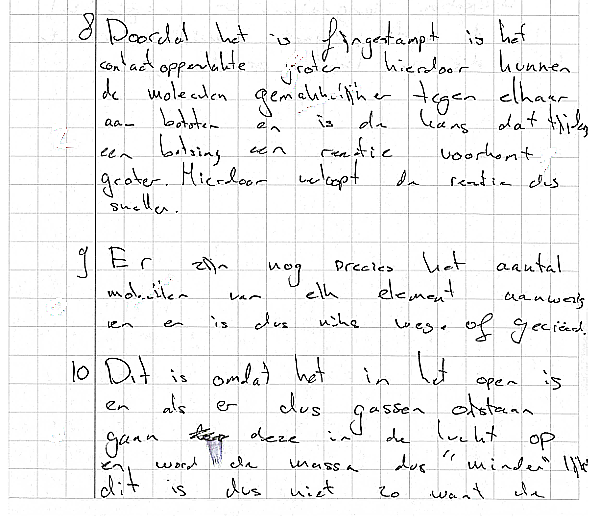 8 Doordat het is fijngestampt is het
contact oppervlakte groter hierdoor kunnen
de moleculen gemakkelijker tegen elkaar
aan botsten en is de kans dat tijdens
een botsing een reactie voorkomt
groter. Hierdoor verloopt de reactie dus
sneller.
9 Er zijn nog precies het aantal
moleculen van elk element aanwezig
en er is dus niks weg. of gecreëerd.
10 Dit is omdat het in het open is
en als er dus gassen ontstaan
gaan deze in de lucht op
en word de massa dus "minder" lijkt
dit is dus niet zo want de